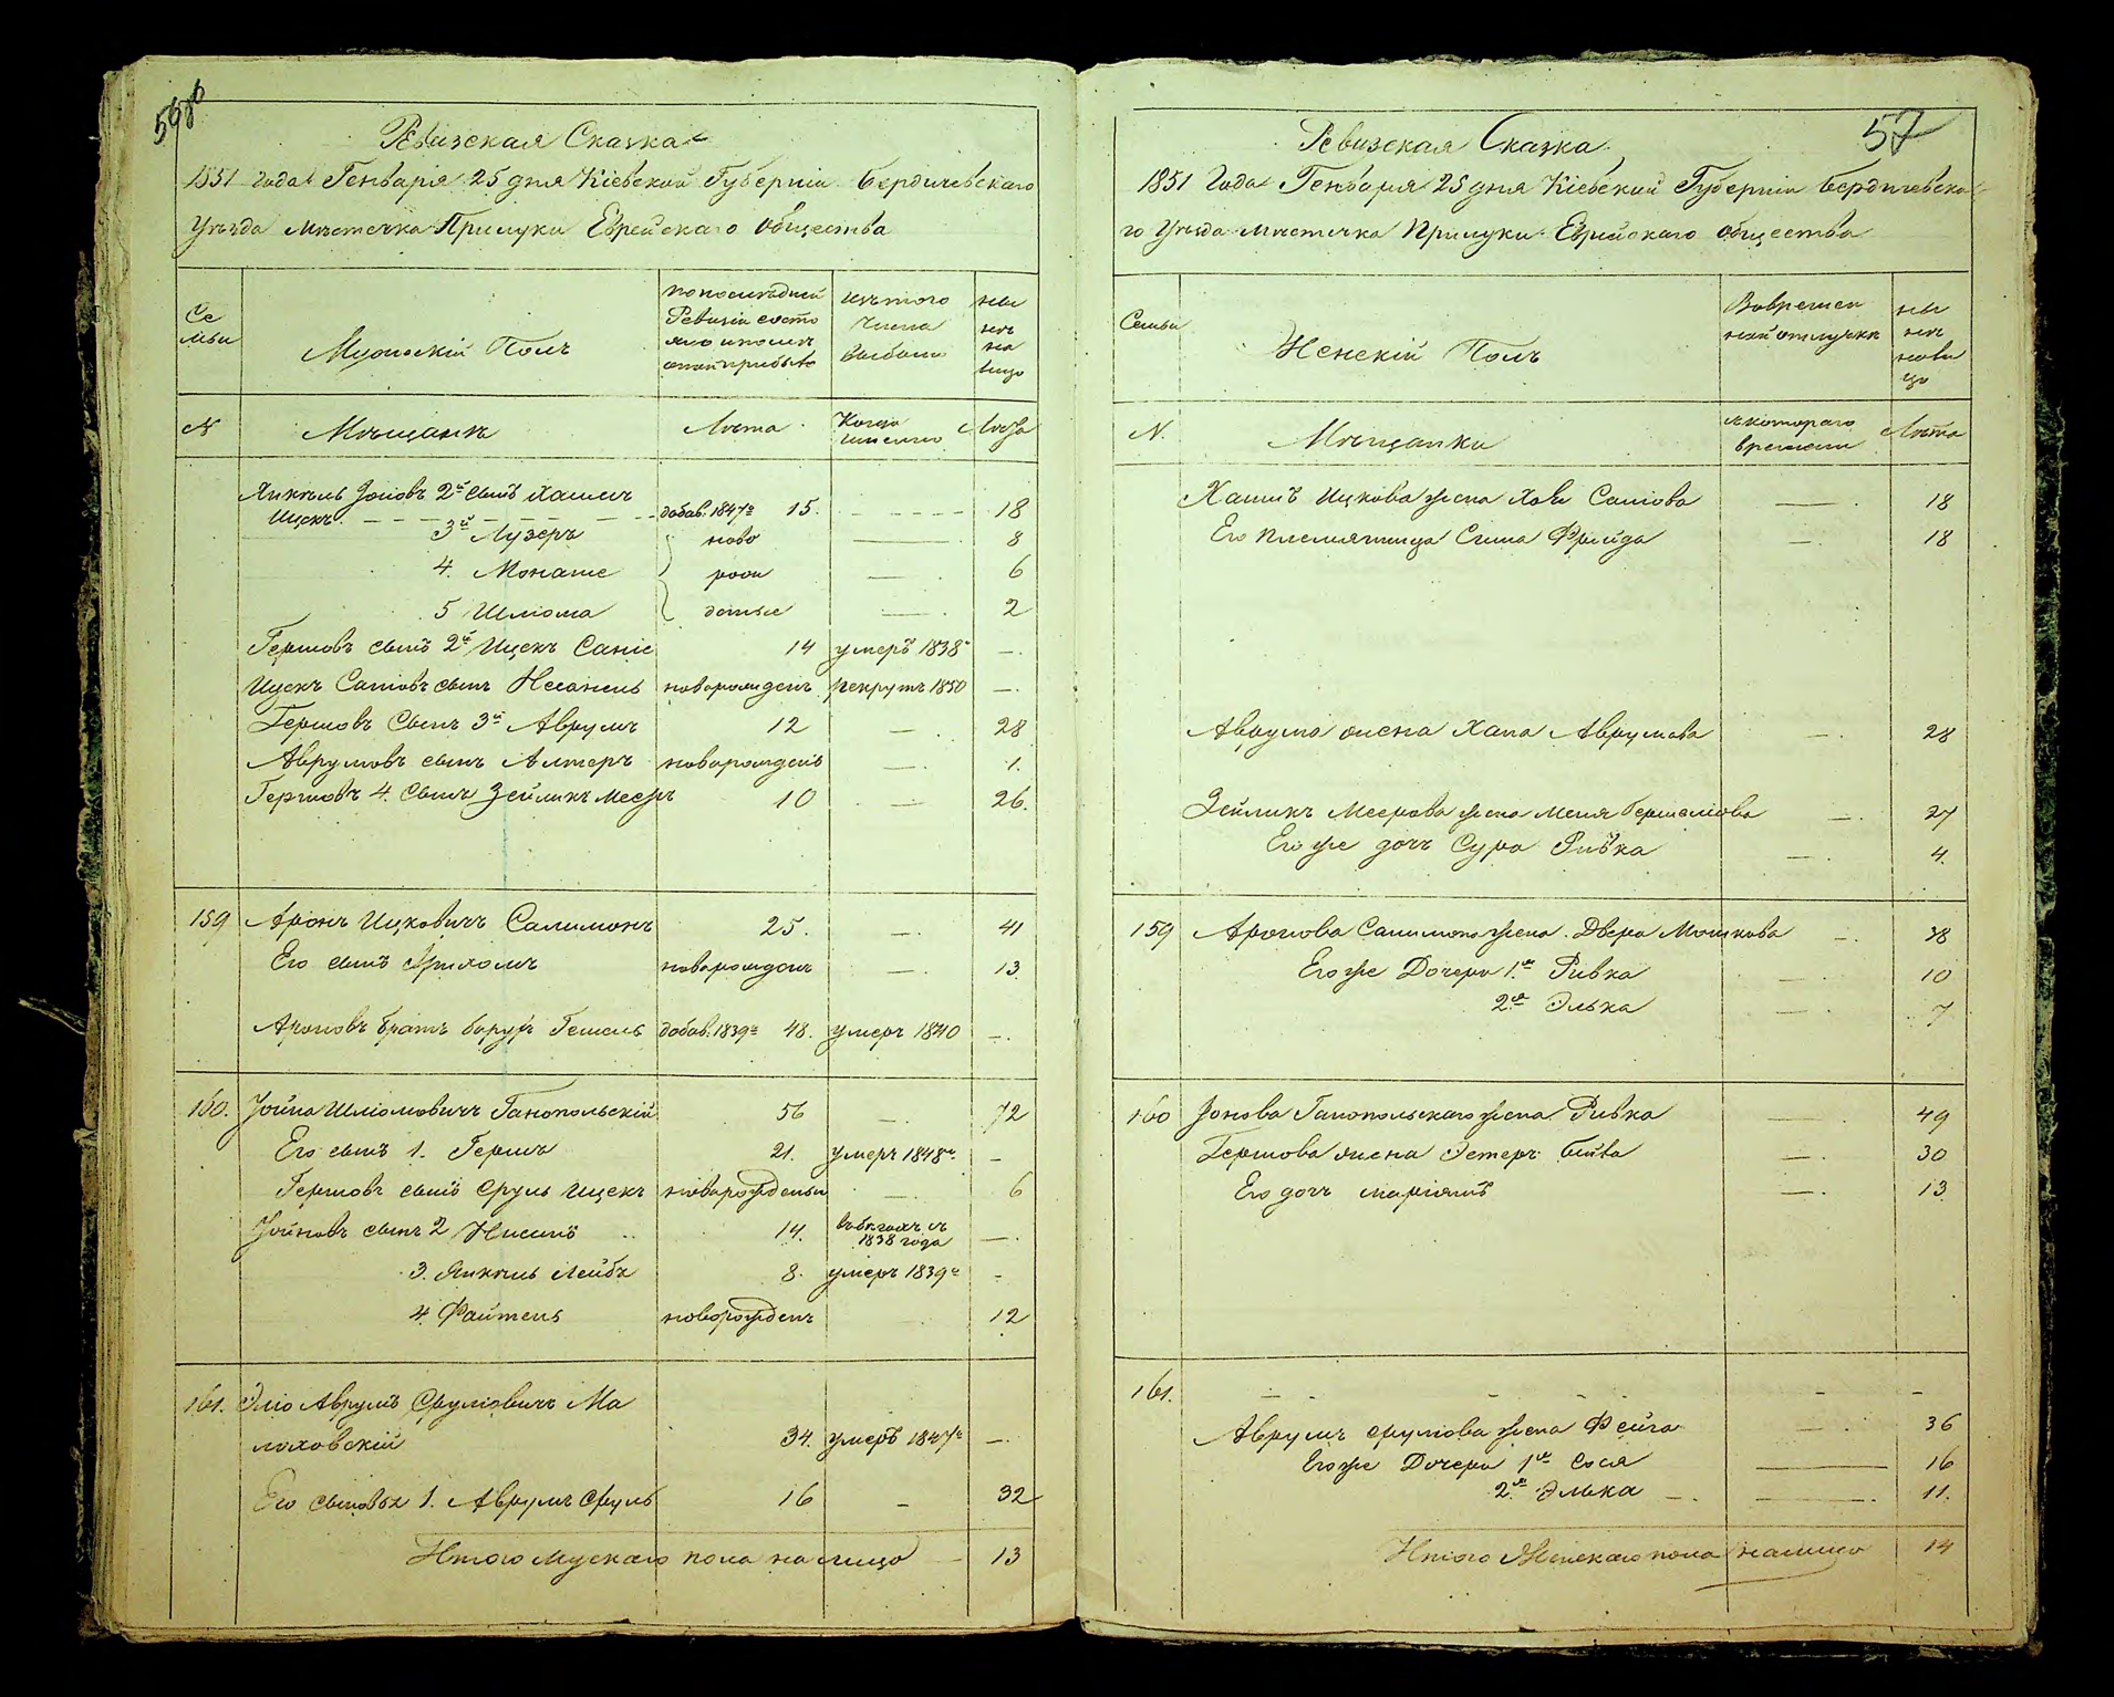 Ревизская Сказка
1851 года Генваря 25 дня Кіевской Губерніи Бердичевскаго
Уѣзда мѣстечка Прилуки Еврейскаго общества
Се
мьи
Мужескій Полъ
по последней
Ревизіи состо
яло и после
онои прибыло
изъ того
числа
выбыло
ны
не
на
лицо
№
Мѣщанъ
Лѣта
Когда
именно
Лѣта
Янкель Іоновъ 2й сынъ Хаимъ
Ицекъ добав. 1847г 15. 18
3й Лузеръ ново 8
4. Монаше рож 6
5 Шліома денные 2
Гершовъ сынъ 2й Ицекъ Саніе 14 умеръ 1838г
Ицекъ Саніовъ сынъ новорожденъ рекрутъ 1850
Гершовъ Сынъ 3й Аврумъ 12 28
Аврумовъ сынъ Алтеръ новорожденъ 1.
Гершовъ 4. Сынъ Зейликъ Мееръ 10 26.
159 Аронъ Ицковичъ Салимонъ 25. 41
Его сынъ новорожденъ 13
Ароновъ братъ Борухъ Гешель добав. 1839г 48. умеръ 1840
160. Іойна Шліомовичъ Ганопольскій 56 72
Его сынъ 1. Гершъ 21. умеръ 1848г.
Гершовъ сынъ Сруль Ицекъ новорожденъ 6
Іойновъ сынъ 2 Нисинъ 14. въ бегахъ съ
1838 года
3. Янкель Лейбъ 8. умеръ 1839г
4. Файтель новорожденъ 12
161. Эліо Аврумъ Сруліовичъ Ма
лоховскій 34. умеръ 1847г
Его сыновья 1. Аврумъ Сруль 16 32
Итого мужскаго пола на лицо 13
57
Ревизская Сказка
1851 Года Генваря 25 дня Кіевской Губерніи Бердичевска
го Уѣзда мѣстечка Прилуки Еврейскаго общества
Семьи
Женскій Полъ
Во времен
ной отлучкѣ
ны
не
нали
цо
№.
Мѣщанки
съ котораго
времени
Лѣта
Хаимъ Ицкова жена Хова Саніова 18
Его племянница Сима Фрейда 18
Аврума жена Хана Аврумова 28
Зейликъ Меерова жена Меня Гершеліова 27
Его же дочь Сура Ривка 4.
159 Аронова Салимона жена Двера Мошкова 38
Его же Дочери 1я Ривка 10
2я Элька 7
160 Іонова Ганопольскаго жена Ривка 49
Гершова жена Эстеръ Бейла 30
Его дочь Маріямъ 13.
161.
Аврумъ Сруліова жена Фейга 36
Его же Дочери 1я Сося 16
2я Элька 11.
Итого Женскаго пола налицо 14